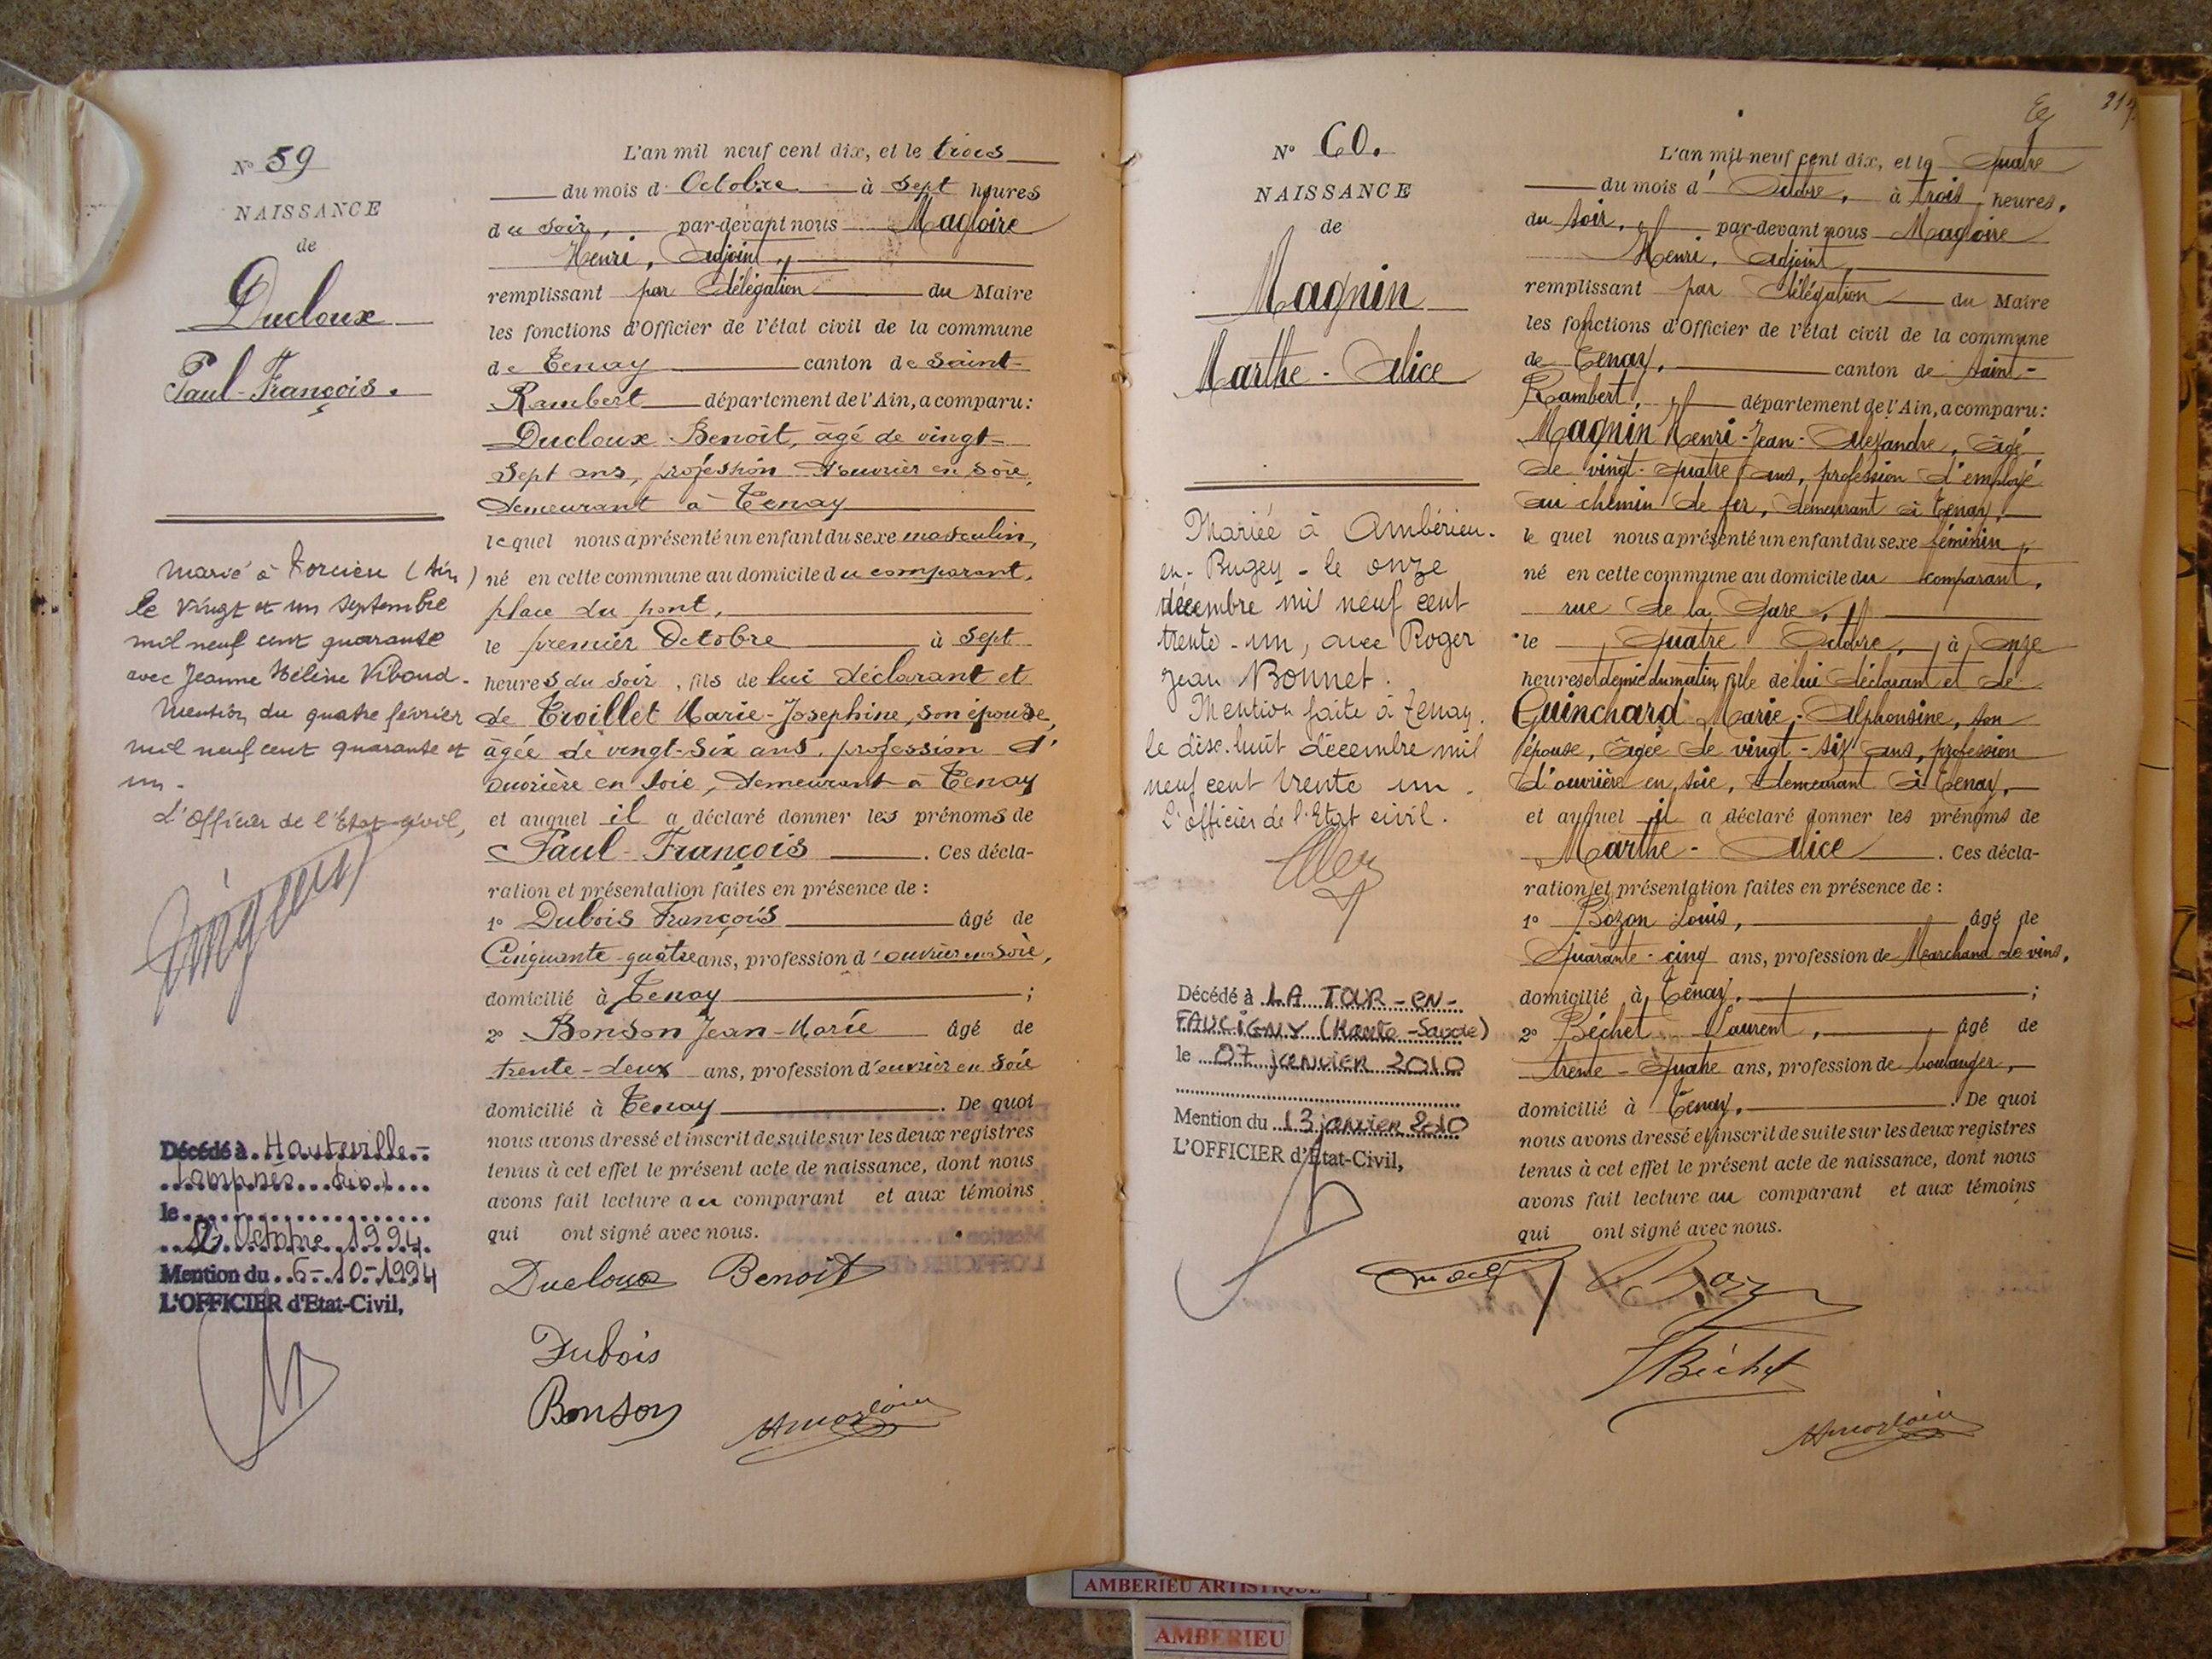 N° 59
NAISSANCE
de
Ducloux
Paul-François.
Marié à (Ain)
le vingt et un septembre
mil neuf cent quarante
avec Jeanne Hélène Vibaud.
Mention du quatre février
mil neuf cent quarante et
un.
L'Officier de l'Etat-civil,
Décédé à Hauteville-
Lompnes (Ain)
le
Octobre 1994
Mention du 6-10-1994
L'OFFICIER d'Etat-Civil,
L'an mil neuf cent dix, et le trois
du mois d'Octobre à sept heures
du soir, par-devant nous Magloire
Henri, Adjoint,
remplissant par délégation du Maire
les fonctions d'Officier de l'état civil de la commune
de Tenay canton de Saint-
Rambert département de l'Ain, a comparu:
Ducloux Benoît, âgé de vingt-
sept ans, profession d'ouvrier en soie,
demeurant à Tenay
lequel nous a présenté un enfant du sexe masculin,
né en cette commune au domicile du comparant,
place du pont,
le premier Octobre à sept
heures du soir, fils de lui déclarant et
de Troillet Marie-Josephine, son épouse,
âgée de vingt-six ans, profession d'
ouvrière en soie, demeurant à Tenay
et auquel il a déclaré donner les prénoms de
Paul-François. Ces décla-
ration et présentation faites en présence de :
1° Dubois François âgé de
Cinquante-quatre ans, profession d'ouvrier en soie,
domicilié à Tenay ;
2° Bonson Jean-Marie âgé de
trente-deux ans, profession d'ouvrier en soie
domicilié à Tenay. De quoi
nous avons dressé et inscrit de suite sur les deux registres
tenus à cet effet le présent acte de naissance, dont nous
avons fait lecture au comparant et aux témoins
qui ont signé avec nous.
Ducloux Benoit
Dubois
Bonson
HMagloire
217
N° 60.
NAISSANCE
de
Magnin
Marthe-Alice
Mariée à Ambérieu-
en-Bugey - le onze
décembre mil neuf cent
trente-un, avec Roger
Jean Bonnet.
Mention faite à Tenay.
le dix-huit décembre mil
neuf cent trente un.
L'officier de l'Etat civil.
Décédé à LA TOUR-EN-
FAUCIGNY (Haute-Savoie)
le 07 janvier 2010
Mention du 13 janvier 2010
L'OFFICIER d'Etat-Civil,
L'an mil neuf cent dix, et le quatre
du mois d'Octobre, à trois heures,
du soir, par-devant nous Magloire
Henri, Adjoint,
remplissant par délégation du Maire
les fonctions d'Officier de l'état civil de la commune
de Tenay, canton de Saint-
Rambert, département de l'Ain, a comparu:
Magnin Henri-Jean-Alexandre, âgé
de vingt-quatre ans, profession d'employé
au chemin de fer, demeurant à Tenay,
lequel nous a présenté un enfant du sexe féminin,
né en cette commune au domicile du comparant,
rue de la Gare,
le quatre Octobre, à onze
heures et demie du matin, fille de lui déclarant et de
Guinchard Marie-Alphonsine, son
épouse, âgée de vingt-six ans, profession
d'ouvrière en soie, demeurant à Tenay,
et auquel il a déclaré donner les prénoms de
Marthe-Alice. Ces décla-
ration et présentation faites en présence de :
1° Bozon Louis, âgé de
Quarante-cinq ans, profession de Marchand de vins,
domicilié à Tenay, ;
2° Béchet Laurent, âgé de
trente-quatre ans, profession de boulanger,
domicilié à Tenay,. De quoi
nous avons dressé et inscrit de suite sur les deux registres
tenus à cet effet le présent acte de naissance, dont nous
avons fait lecture au comparant et aux témoins
qui ont signé avec nous.
Béchet
HMagloire
AMBERIEU ARTISTIQUE
AMBERIEU